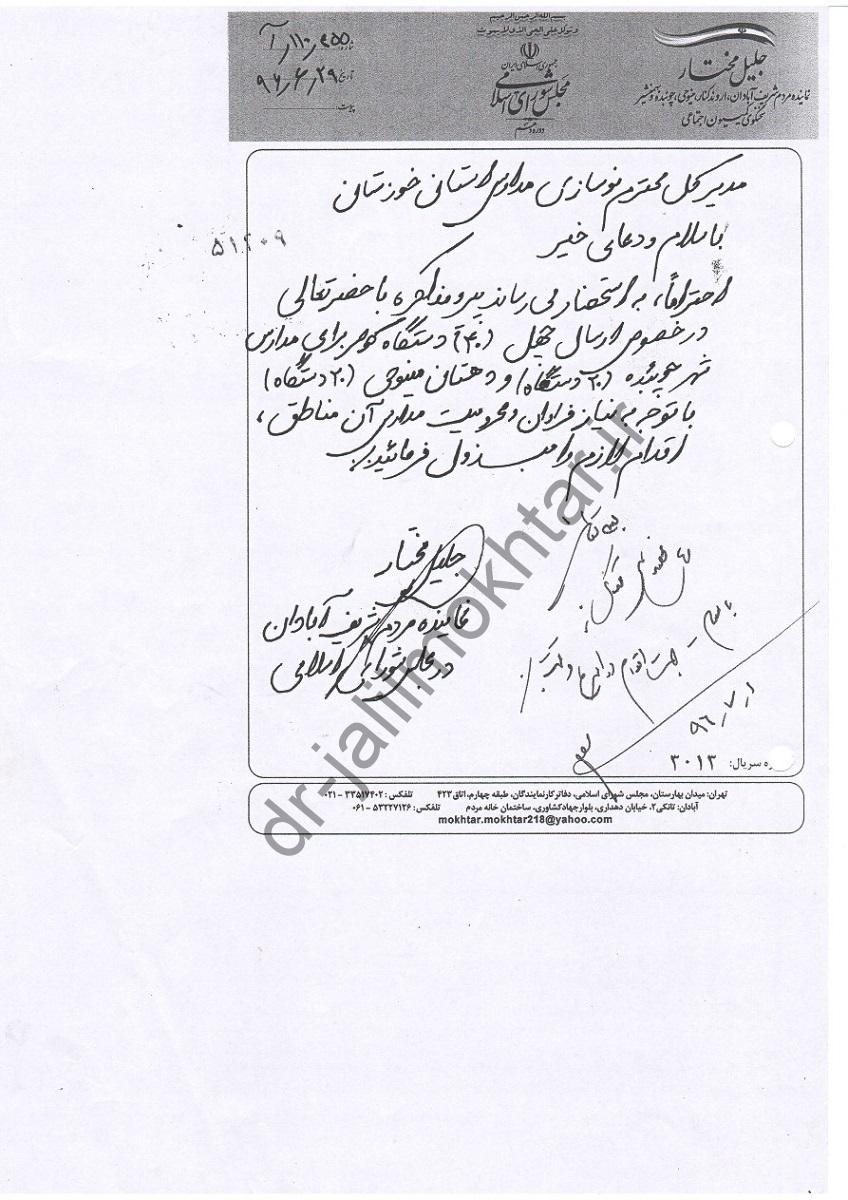 بسم الله الرحمن الرحیم
جمهوری اسلامی ایران
مجلس شورای اسلامی
جلیل مختار
نماینده مردم شریف آبادان، اروندکنار، مینوحی، چوئبده و بهمنشیر
سخنگوی کمیسیون اجتماعی
شماره
تاریخ ۹۶٫۶٫۲۹
پیوست
مدیرکل محترم نوسازی مدارس استان خوزستان
با سلام و دعای خیر
۵۱۲۰۹
احتراماً، به استحضار می رساند پیرو مذاکره با حضرتعالی
در خصوص ارسال چهل (۴۰) دستگاه کولر برای مدارس
شهر چوئبده (۲۰ دستگاه) و دهستان مینوحی (۲۰ دستگاه)
با توجه به نیاز فراوان و محرومیت مدارس آن مناطق،
اقدام لازم را مبذول فرمائید.
جلیل مختار
نماینده مردم شریف آبادان
در مجلس شورای اسلامی
با سلام
۹۶٫۷٫۱
ره سریال: ۲۰۱۲
تهران: میدان بهارستان، مجلس شورای اسلامی، دفاتر کار نمایندگان، طبقه چهارم، اتاق ۴۲۳ تلفکس: ۳۳۵۱۷۴۰۲ - ۰۲۱
آبادان: تانکی۲، خیابان دهداری، بلوار جهاد کشاورزی، ساختمان خانه مردم تلفکس: ۵۳۲۲۷۱۲۶ - ۰۶۱
mokhtar.mokhtar218@yahoo.com
dr-jalilmokhtar.ir